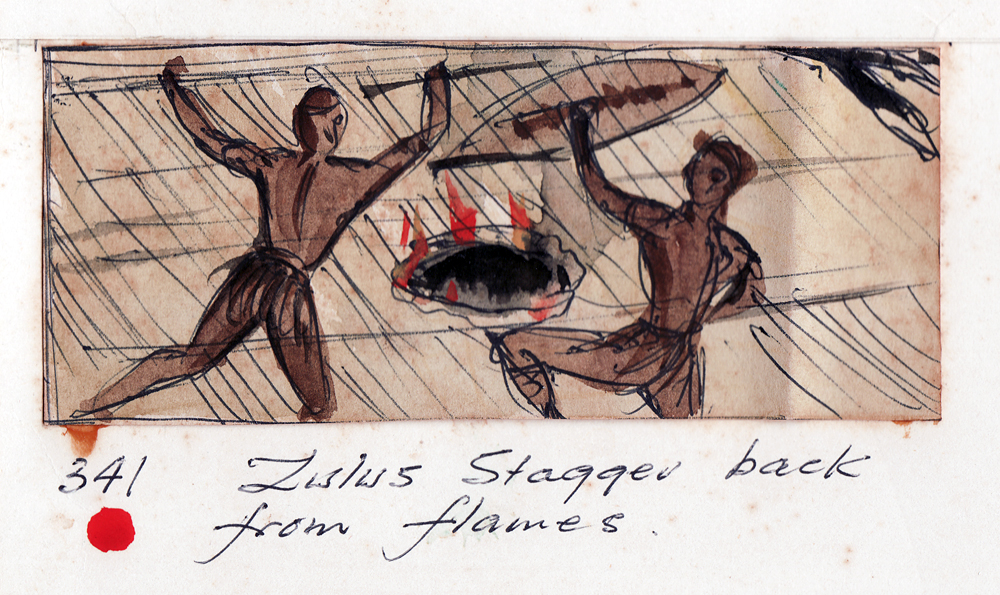 341 Zulus Stagger back
from flames.